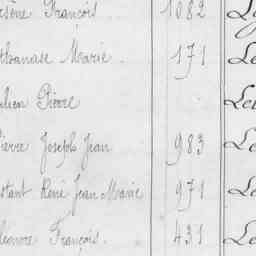 François 1082
Athanase Marie. 171 Le
Julien Pierre Le
Pierre Joseph Jean 983 Le
Constant René Jean Marie 971 Le
Eléonore François. 431 Le